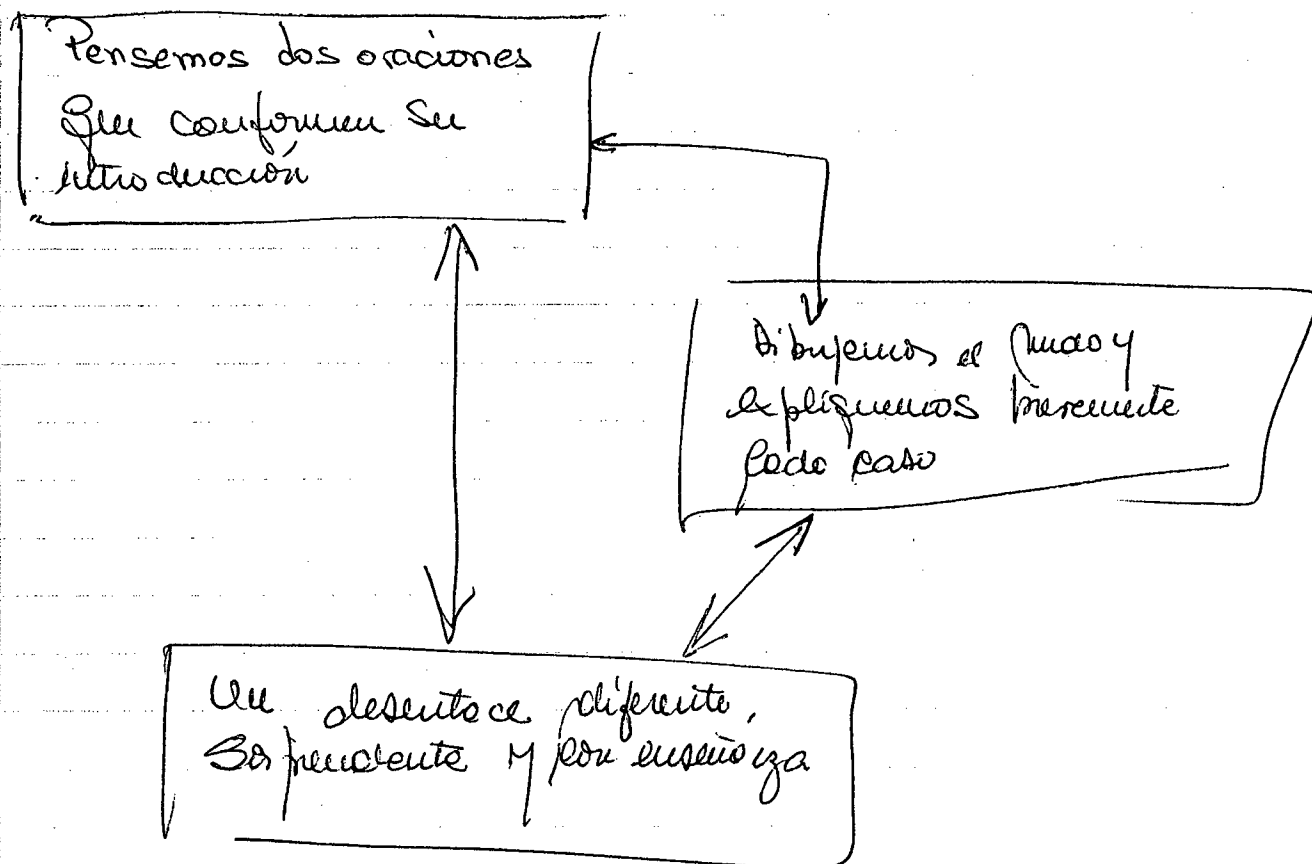 Pensemos dos oraciones
que conformen su
introducción
Dibujemos el nudo y
expliquemos brevemente
cada caso
Un desenlace diferente,
Sorprendente y con enseñanza